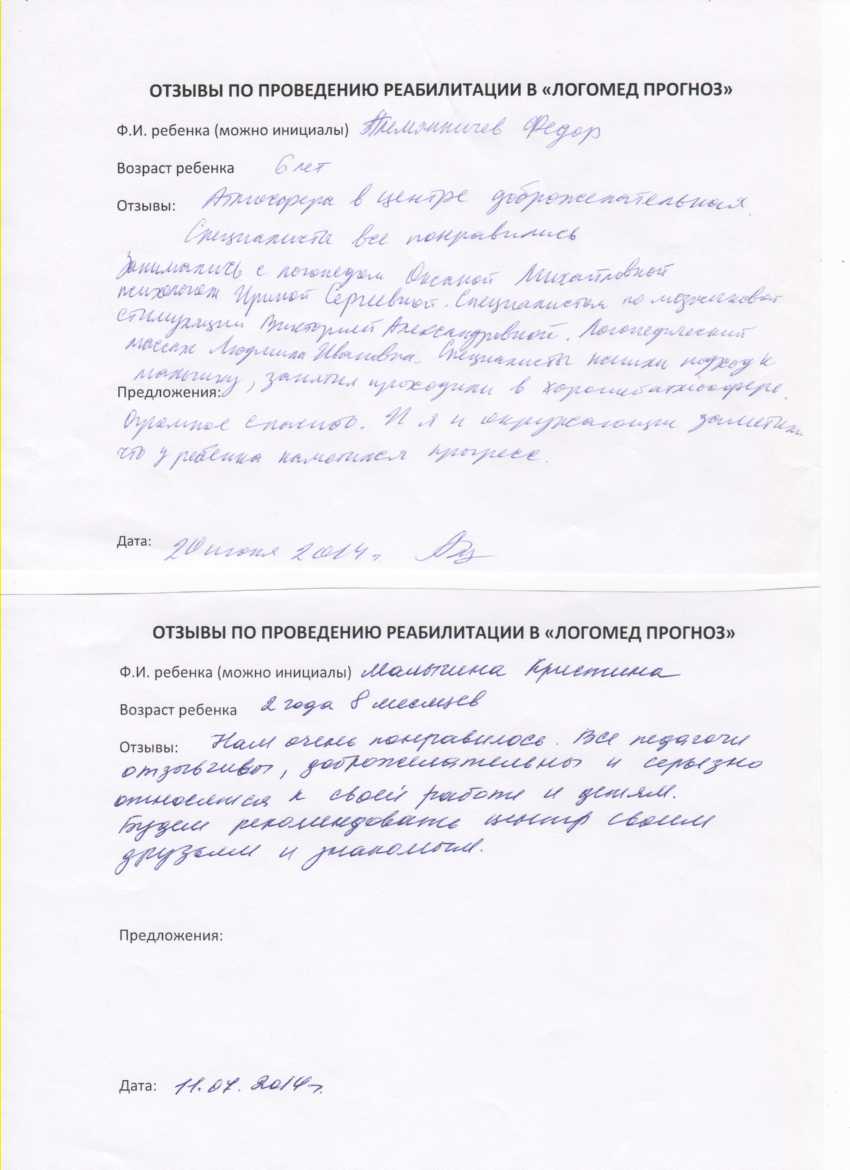 ОТЗЫВЫ ПО ПРОВЕДЕНИЮ РЕАБИЛИТАЦИИ В «ЛОГОМЕД ПРОГНОЗ»
Ф.И. ребенка (можно инициалы) Федор
Возраст ребенка 6 лет
Отзывы: Атмосфера в центре доброжелательная.
Специалисты все понравились
Занимались с логопедом Оксаной Михайловной
психологом Ириной Сергеевной. Специалистом по мозжечковой
стимуляции Викторией Александровной. Логопедический
массаж Людмила Ивановна. Специалисты нашли подход к
мальчику, занятия проходили в хорошей атмосфере.
Предложения:
Огромное спасибо. И я и окружающие заметили
что у ребенка наметился прогресс.
Дата: 20 июня 2014 г.
ОТЗЫВЫ ПО ПРОВЕДЕНИЮ РЕАБИЛИТАЦИИ В «ЛОГОМЕД ПРОГНОЗ»
Ф.И. ребенка (можно инициалы) Малыгина Кристина
Возраст ребенка 2 года 8 месяцев
Отзывы: Нам очень понравилось. Все педагоги
отзывчивы, доброжелательны и серьезно
относятся к своей работе и детям.
Будем рекомендовать центр своим
друзьям и знакомым.
Предложения:
Дата: 11.07.2014г.